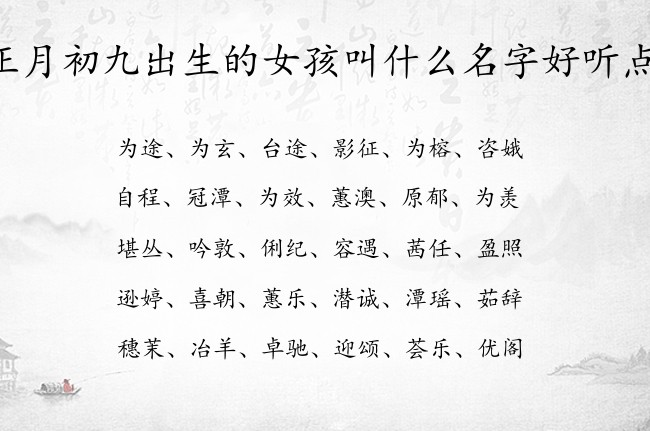 正月初九出生的女孩叫什么名字好听点
为途、为玄、台途、影征、为榕、咨娥
自程、冠潭、为效、蕙澳、原郁、为羡
堪丛、吟敦、俐纪、容遇、茜任、盈照
逊婷、喜朝、蕙乐、潜诚、潭瑶、茹辞
穗茉、冶羊、卓驰、迎颂、荟乐、优阁